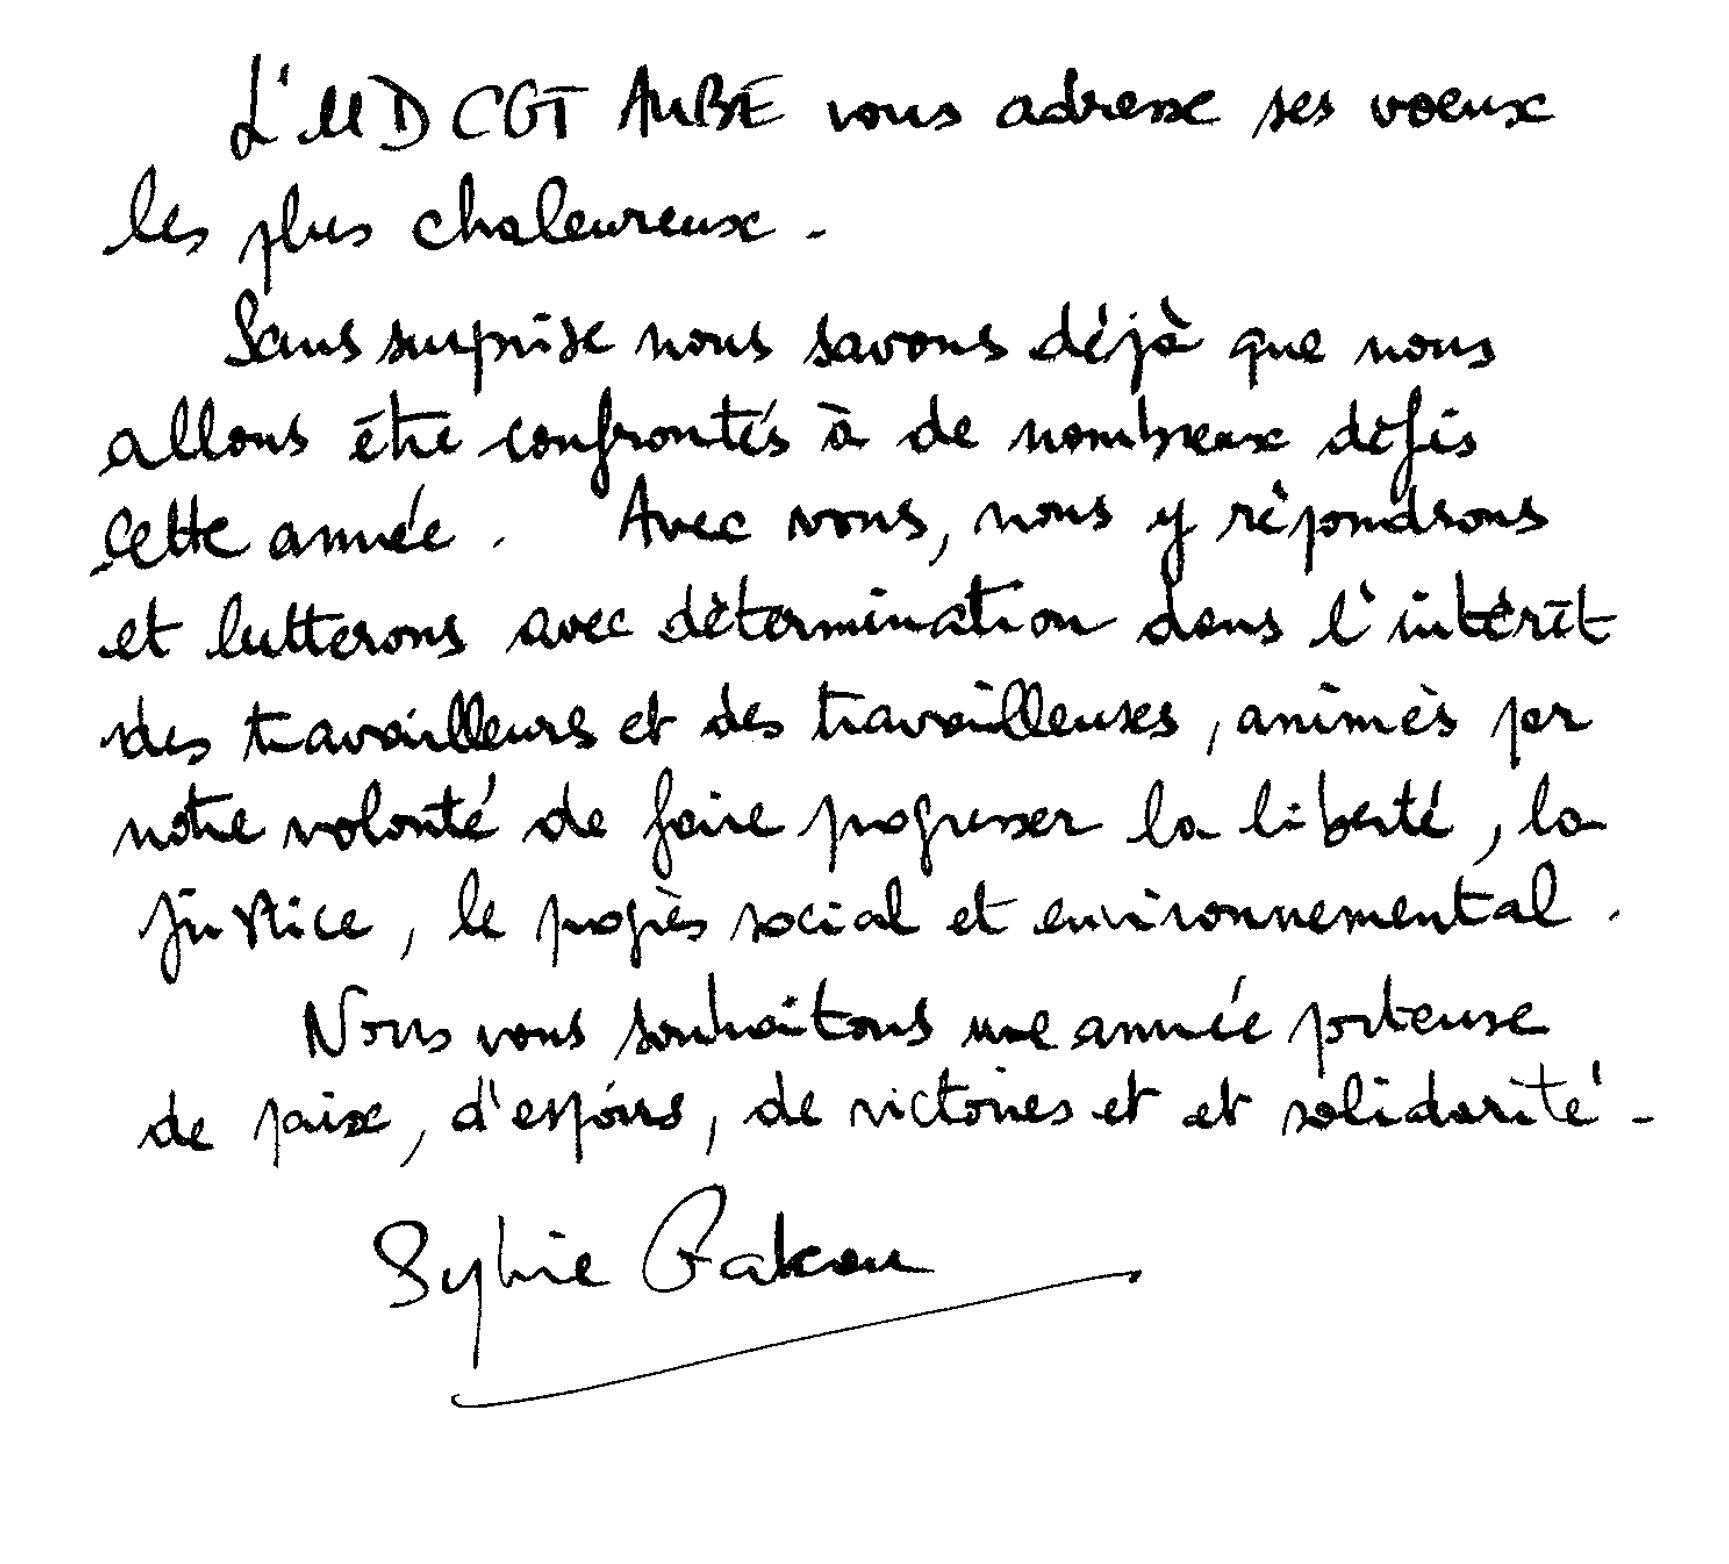 L'UD CGT AUBE vous adresse ses voeux
les plus chaleureux.
Sans surprise nous savons déjà que nous
allons être confrontés à de nombreux défis
cette année. Avec vous, nous y répondrons
et lutterons avec détermination dans l'intérêt
des travailleurs et des travailleuses, animés par
notre volonté de faire progresser la liberté, la
justice, le progrès social et environnemental.
Nous vous souhaitons une année porteuse
de paix, d'espoirs, de victoires et et solidarité.
Sylvie